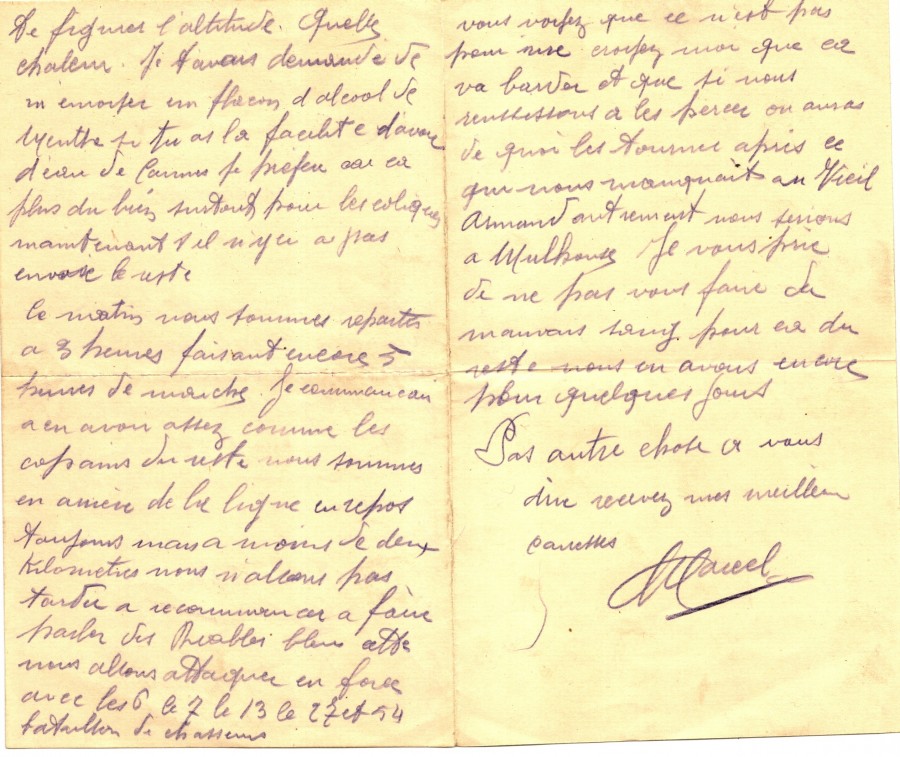 te figurer l'altitude. Quelle
chaleur. Je t avais demande de
m envoyer un flacon d alcool de
Menthe si tu as la facilite d'avoir
d'eau de Carmes je prefere car ca
plus du bien surtout pour les coliques
maintenant s il n y en a pas
envoie le reste
Le matin nous sommes repartis
a 3 heures faisant encore 5
heures de marche. Je commencais
a en avoir assez comme les
copains du reste nous sommes
en arriere de la ligne en repos
toujours mais a moins de deux
Kilometres nous n allons pas
tarder a recommencer a faire
parler des Diables bleus
nous allons attaquer en force
avec les 6 le 7 le 13 le 27 et 54
bataillon de chasseurs
vous voyez que ce n'est pas
pour rire croyez moi que ca
va barder et que si nous
reussissons a les percer on auras
de quoi les tourner apres ce
qui nous manquait au Vieil
Armand autrement nous serions
a Mulhouse Je vous prie
de ne pas vous faire du
mauvais sang pour ca du
reste nous en avons encore
pour quelques jours
Pas autre chose a vous
dire recevez mes meilleurs
caresses
Marcel